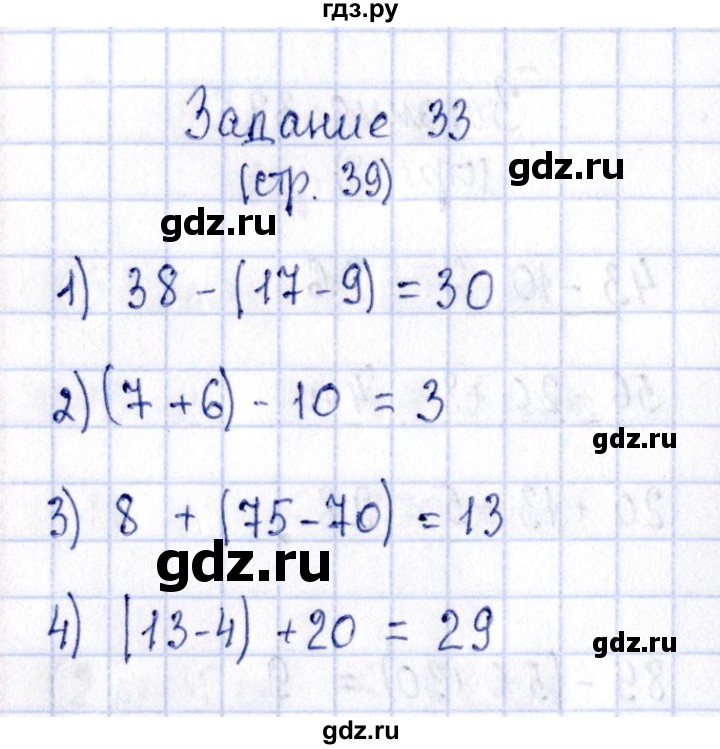 гдз.ру
Задание 33
gdz.ru
(стр. 39)
gdz.ru
1) 38 - (17 - 9) = 30
2) (7 + 6) - 10 = 3
gdz.ru
3) 8 + (75 - 70) = 13
gdz.ru
4) (13 - 4) + 20 = 29
gdz.ru
gdz.ru